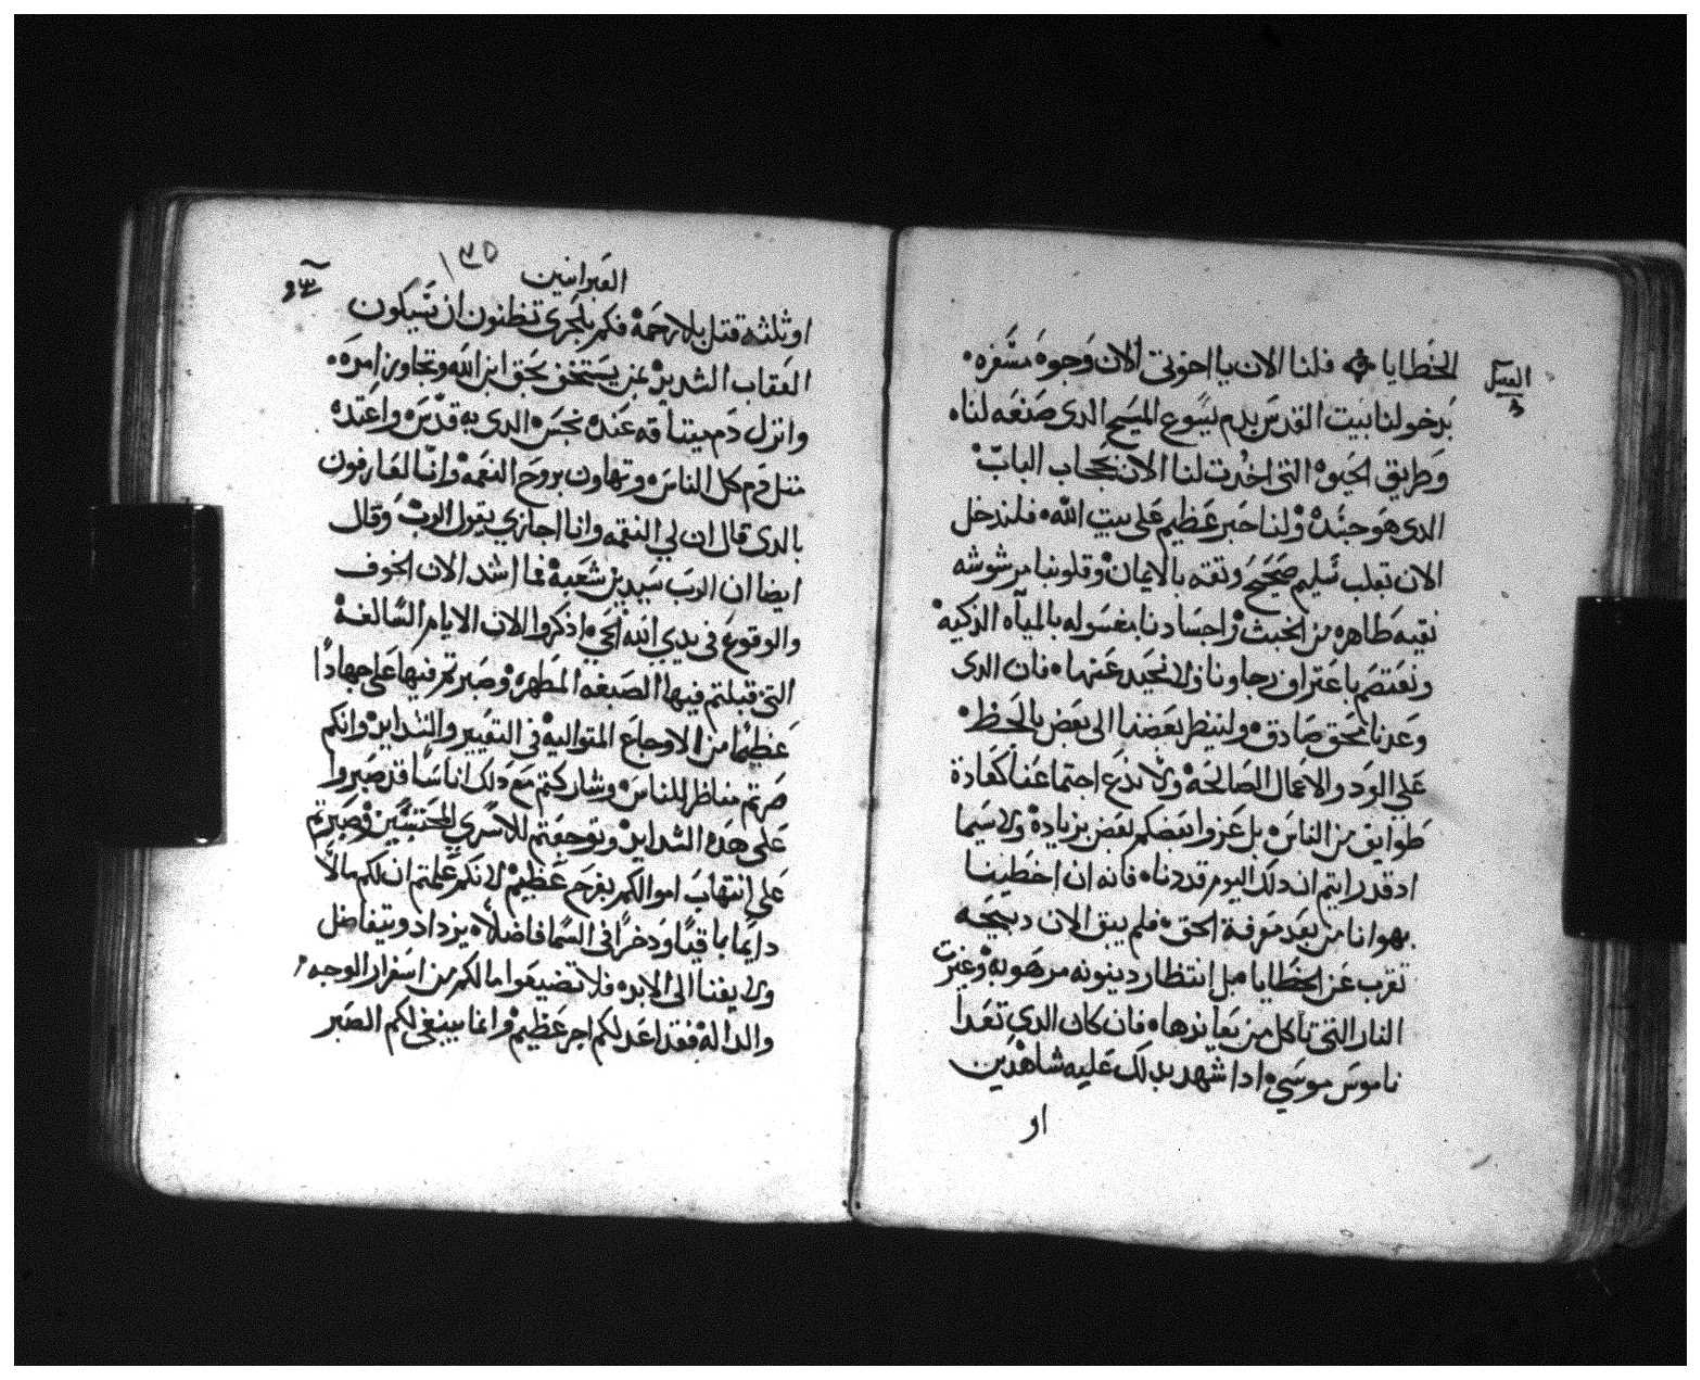 الخطايا فلنا الان يا اخوتى الان وجوه مسفره
بدخولنا بيت القدس بدم يسوع المسيح الدى صنعه لنا
وطريق الحيوة التى اخدت لنا الان بحجاب الباب
الدى هو جسده ولنا حبر عظيم على بيت الله فلندخل
الان بقلب سليم صحيح وثقه بالايمان وقلوبنا مرشوشه
نقيه طاهره من الخبث واجسادنا مغسوله بالمياه الزكيه
ونعتصم باعتراف رجاونا ولا نحيد عنها فان الدى
وعدنا محق صادق ولينظر بعضنا الى بعض بالحظ
على الود والاعمال الصالحة ولا ندع اجتماعنا كعادة
طوايق من الناس بل عزوا بعضكم لبعض بزيادة ولا سيما
اد قد رايتم ان دلك اليوم قد دنا فانه ان اخطينا
بهوانا من بعد معرفة الحق فلم يبق الان دبيحه
تقرب عن الخطايا بل انتظار دينونه مرهوبه وغيرت
النار التى تاكل من يعاندها فان كان الدي تعدا
ناموس موسي ادا شهد بدلك عليه شاهدين
او
العبرانيين
١٣٥
او ثلثه قتل بلا رحمة فكم بالحرى تظنون ان سيكون
العقاب الشديد لمن يستخف بحق ابن الله وتجاوز امره
وانزل دم ميتاقه عنده نجس الدى به قدس واعتده
متل دم كل الناس وتهاون بروح النعمة وانا لعارفون
بالدى قال ان لي النقمه وانا اجازي يقول الرب وقال
ايضا ان الرب سيدين شعبه فما اشد الان الخوف
والوقوع فى يدي الله الحي ادكروا الان الايام السالفة
التى قبلتم فيها الصبغه المطهره وصبرتم فيها على جهادا
عظيما من الاوجاع المتواليه فى التعيير والشدايد وانكم
صرتم مناظر للناس وشاركتم مع دلك اناسا قد صبروا
على هده الشدايد وتوجعتم للاسري المحتبسين وصبرتم
على انتهاب اموالكم بفرح عظيم لانكم علمتم ان لكم مالا
دايما باقيا ودخرا فى السما فاضلا يزداد ويتفاضل
ولا يفنا الى الابد فلا تضيعوا مالكم من اسفرار الوجه
والداله فقد اعد لكم اجر عظيم وانما ينبغى لكم الصبر